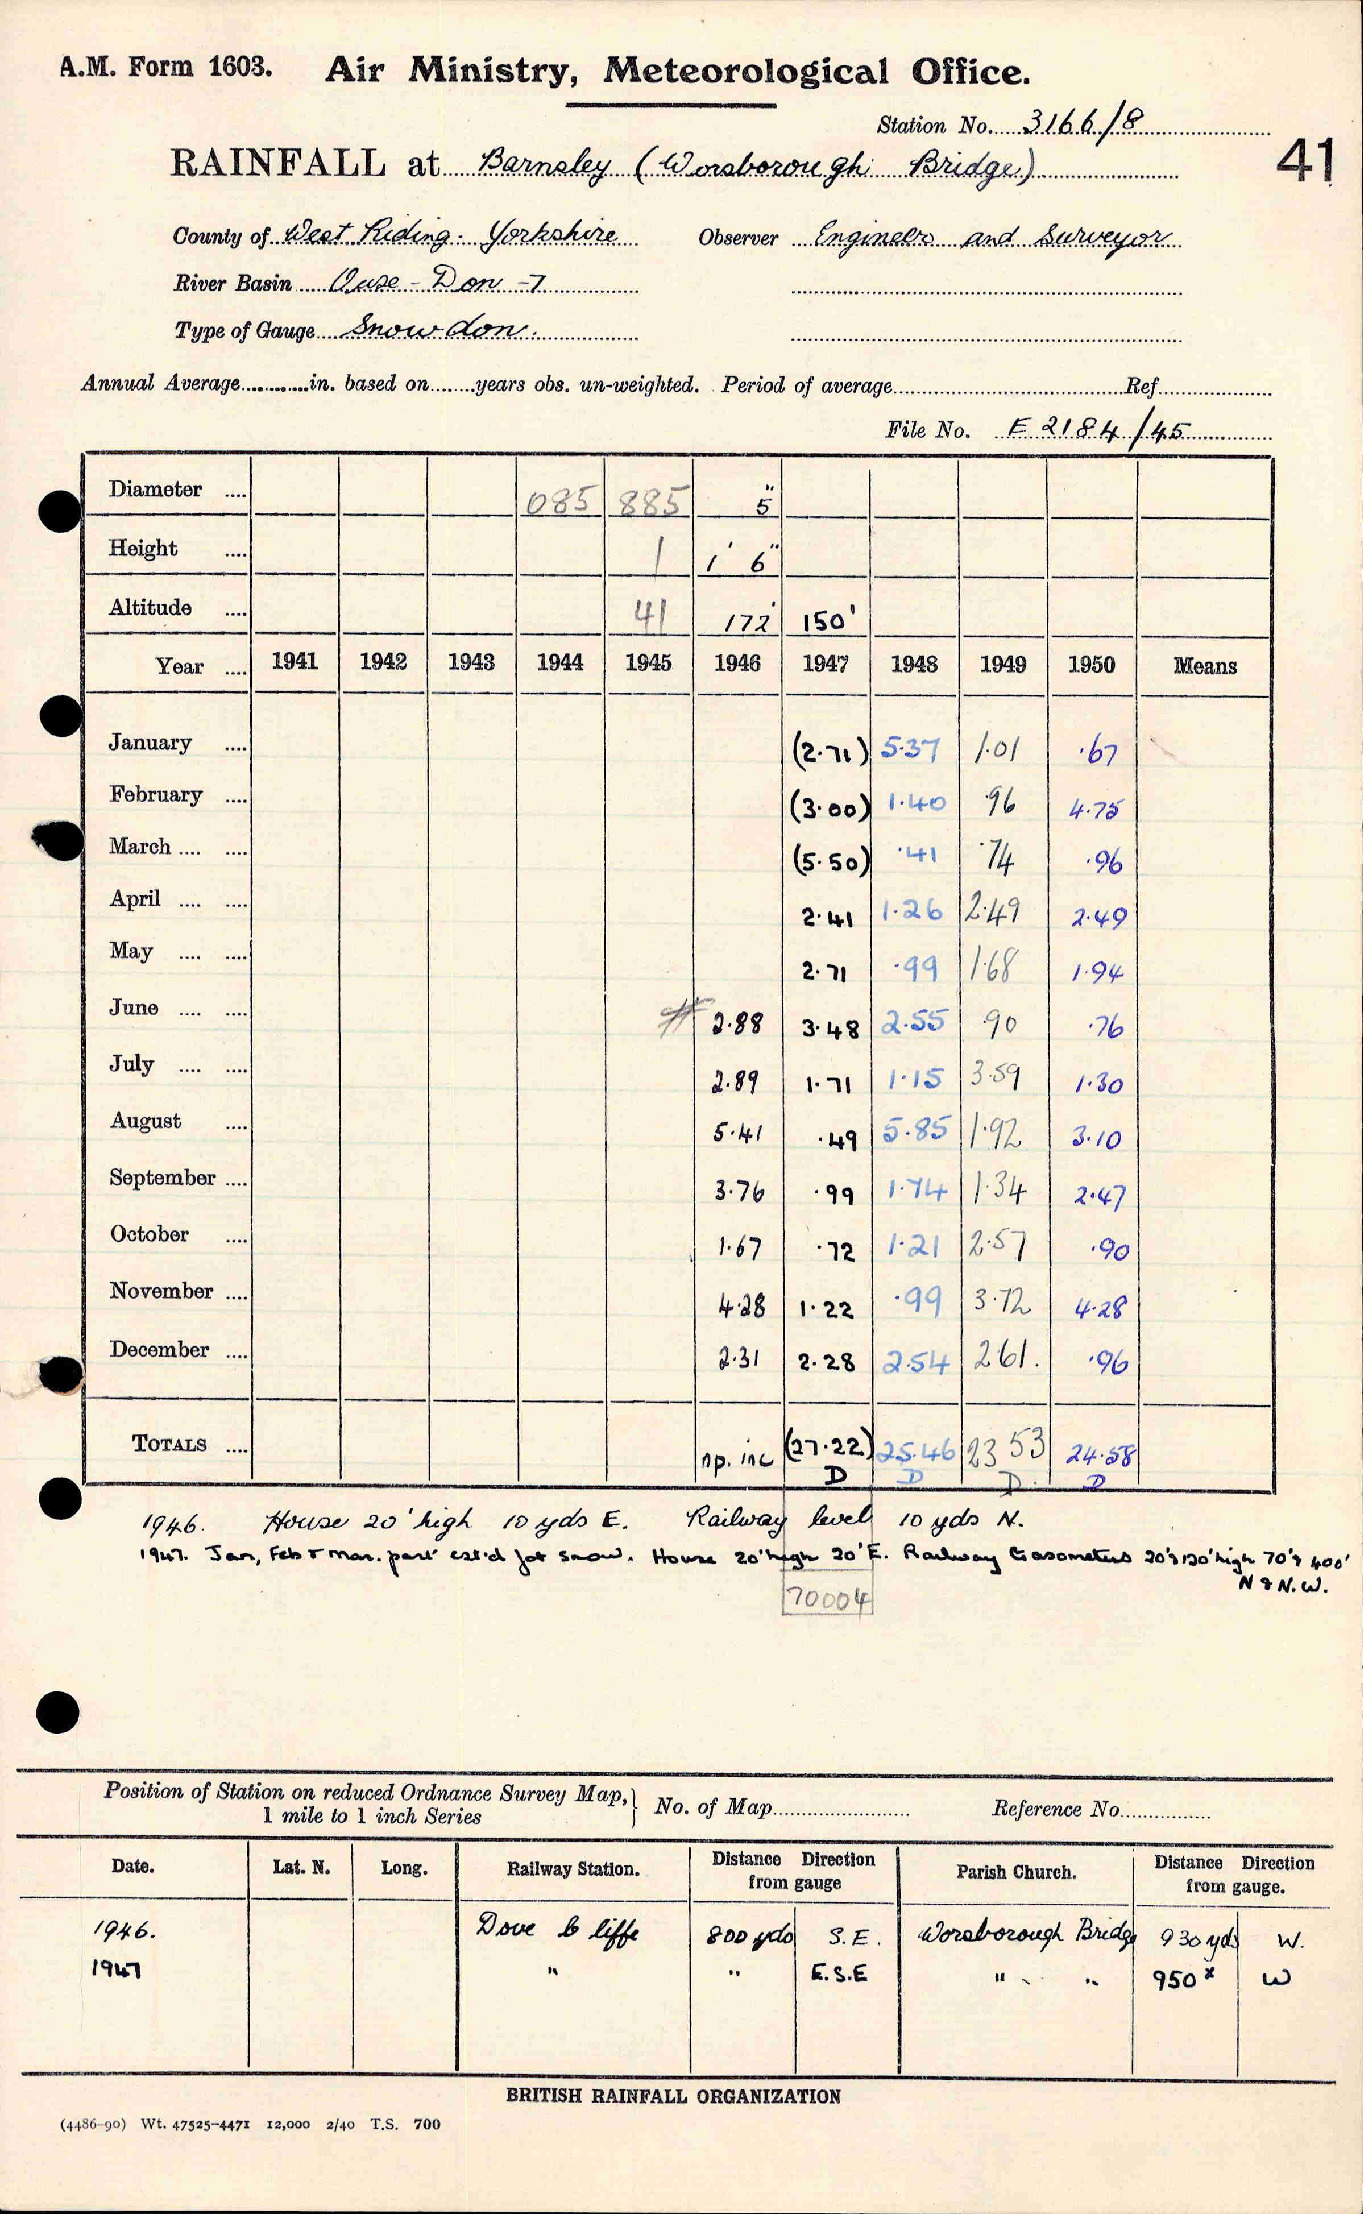 A.M. Form 1603. Air Ministry, Meteorological Office.
Station No. 3166/8
41
RAINFALL at Barnsley (Worsborough Bridge)
County of West Riding. Yorkshire Observer Engineer and Surveyor
River Basin Ouse - Don - 7
Type of Gauge Snowdon.
Annual Average............in. based on........years obs. un-weighted. Period of average.................... Ref....................
File No. E 2184/45
Diameter .... 085 885 5"
Height .... 1 1' 6"
Altitude .... 41 172' 150'
Year .... 1941 1942 1943 1944 1945 1946 1947 1948 1949 1950 Means
January .... (2.71) 5.37 1.01 .67
February .... (3.00) 1.40 .96 4.75
March .... .... (5.50) .41 .74 .96
April .... .... 2.41 1.26 2.49 2.49
May .... .... 2.71 .99 1.68 1.94
June .... .... # 2.88 3.48 2.55 .90 .76
July .... .... 2.89 1.71 1.15 3.59 1.30
August .... 5.41 .49 5.85 1.92 3.10
September .... 3.76 .99 1.74 1.34 2.47
October .... 1.67 .72 1.21 2.57 .90
November .... 4.28 1.22 .99 3.72 4.28
December .... 2.31 2.28 2.54 2.61. .96
TOTALS .... np. inc (27.22) 25.46 23 53 24.58
D D D. D
1946. House 20' high 10 yds E. Railway level 10 yds N.
1947. Jan, Feb & Mar. part est'd for snow. House 20' high 20' E. Railway Gasometers 20' & 120' high 70' & 400'
N & N.W.
70004
Position of Station on reduced Ordnance Survey Map,} No. of Map.................... Reference No................
1 mile to 1 inch Series
Date. Lat. N. Long. Railway Station. Distance Direction from gauge Parish Church. Distance Direction from gauge.
1946. Dove Cliffe 800 yds S.E. Worsborough Bridge 930 yds W.
1947 " " E.S.E " " 950 x W
BRITISH RAINFALL ORGANIZATION
(4486-90) Wt. 47525-4471 12,000 2/40 T.S. 700